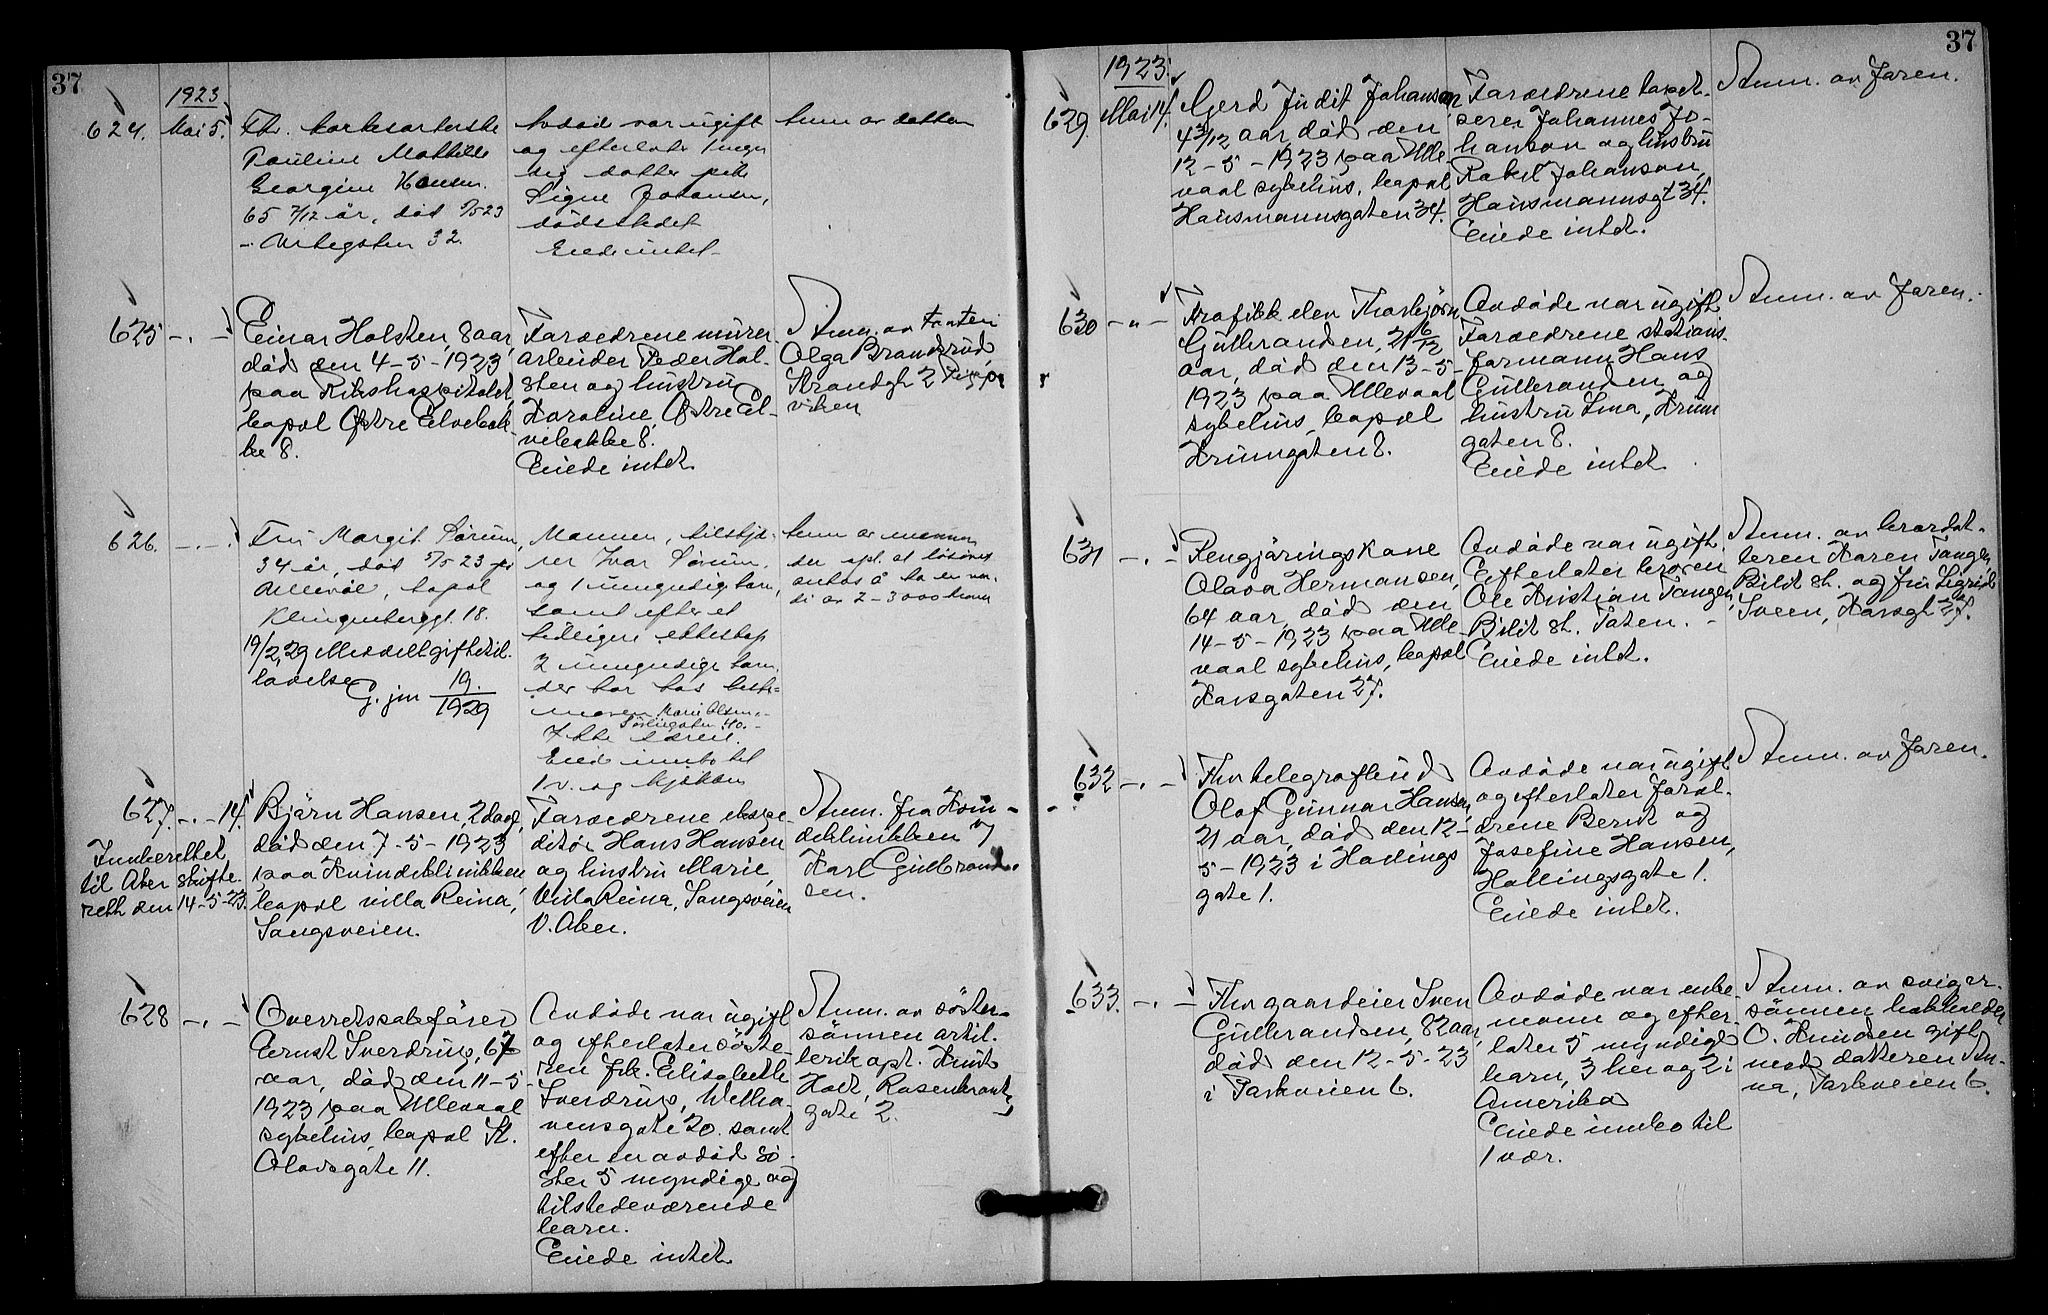 37
1923
624. Mai 5.
Fhv. korkesorterske
Pauline Mathilde
Georgine Hansen.
65 7/12 år, död 5/5 23
Avdöd var ugift
og efterlater 1 myn
dig datter
Signe Johansen,
dödsstedet
Eiede intet
Anm av datteren
625 -.-
Einar Holsten, 8 aar,
død den 4-5-1923
paa Rikshospitalet
bopæl Østre Elvebak-
ke 8.
Forældrene murer
arbeider Peder Hol-
sten og hustru
Karoline, Østre El-
vebakke 8.
Eiede intet
Anm. av tanten
Olga Brandsrud
Strandgt 2
viken
626. -.-
Fru Margit Sørum,
34 år, död 5/5 23 på
Ullevål, bopæl
Klingenberggt. 18.
19/2, 29 Meddelt giftetil-
ladelse
G. jnr 19./1929
Mannen,
Ivar Sørum,
og 1 umyndig barn,
samt efter et
tidligere ekteskap
2 umyndige barn,
der bor hos beste-
moren Marie Olsen,
40.
Eied innbo til
1 v. og kjökken
Anm av mannen
der opl. at
antas å ha en ver-
di av 2-3000 kroner
627. -.- 14.
Innberettet
til Aker skifte-
rett den 14-5-23.
Bjørn Hansen, 2 dage,
død den 7-5-1923
paa Kvindeklinikken,
bopæl villa Reina,
Sangsveien.
Forældrene ekspe-
ditør Hans Hansen
og hustru Marie,
Villa Reina, Sangsveien
V. Aker.
Anm. fra Kvin-
deklinikken v/
Karl Gulbrand-
sen.
628 -.-
Overretssakfører
Ernst Sverdrup, 67
aar, død den 11-5
1923 paa Ullevaal
sykehus, bopæl St.
Olavsgate 11.
Avdøde var ugift
og efterlater søste-
ren frk. Elisabeth
Sverdrup, Welha-
vensgate 20. samt
efter en avdød sø-
ster 5 myndige og
tilstedeværende
barn.
Eiede intet
Anm. av søster-
sønnen artil.
lerikapt. Knut
Hoel, Rosenkrantz
gate 2.
37
1923
629. Mai 14.
Gerd Judit Johanson,
4 3/12 aar, død den
12-5-1923 paa Ulle
vaal sykehus, bopæl
Hausmannsgaten 34.
Forældrene tapet-
serer Johannes Jo-
hanson og hustru
Rakel Johanson,
Hausmannsgt 34.
Eiede intet.
Anm. av faren.
630 -"-
Trafikkelev Thorbjørn
Gulbranden, 21 6/12
aar, død den 13-5-
1923 paa Ullevaal
sykehus, bopæl
Krumgaten 8.
Avdøde var ugift
Forældrene stasjons-
formann Hans
Gulbranden og
hustru Lina, Krum
gaten 8.
Eiede intet
Anm. av faren.
631 -.-
Rengjøringskone
Olava Hermansen,
64 aar, død den
14-5-1923 paa Ulle-
vaal sykehus, bopæl
Korsgaten 27.
Avdøde var ugift.
Efterlater broren
Ole Kristian Tangen,
Bilit st. Toten.
Eiede intet.
Anm. av brordat-
teren Karen Tangen,
Bilit st. og fru Sigrid
Sveen, Korsgt 27.
632 -.-
Fhv telegrafbud
Olaf Gunnar Hansen,
21 aar, død den 12-
5-1923 i Hallings
gate 1.
Avdøde var ugift
og efterlater foræl-
drene Bernt og
Josefine Hansen,
Hallingsgate 1.
Eiede intet.
Anm. av faren.
633. -.-
Fhv gaardeier Sven
Gulbrandsen, 82 aar,
død den 12-5-23
i Parkveien 6.
Avdøde var enke-
mann og efter-
later 5 myndige
barn, 3 her og 2 i
Amerika
Eiede innbo til
1 vær.
Anm. av sviger-
sønnen bokholder
O. Knudsen gift
med datteren An-
na, Parkveien 6.